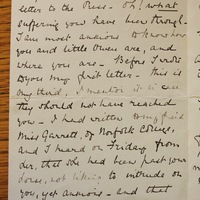 letter to the Press - Oh! what
suffering you have been through -
I am most anxious to know how
you and little Owen are, and
where you are - Before I wrote
you my first letter - this is
my third, I mention it in case
they should not have reached
you - I had written to my friend
Miss Garrett, of Norfolk College,
and I heard on Friday from
her, that she had been past your
house, not liking to intrude on
you, yet anxious - and that